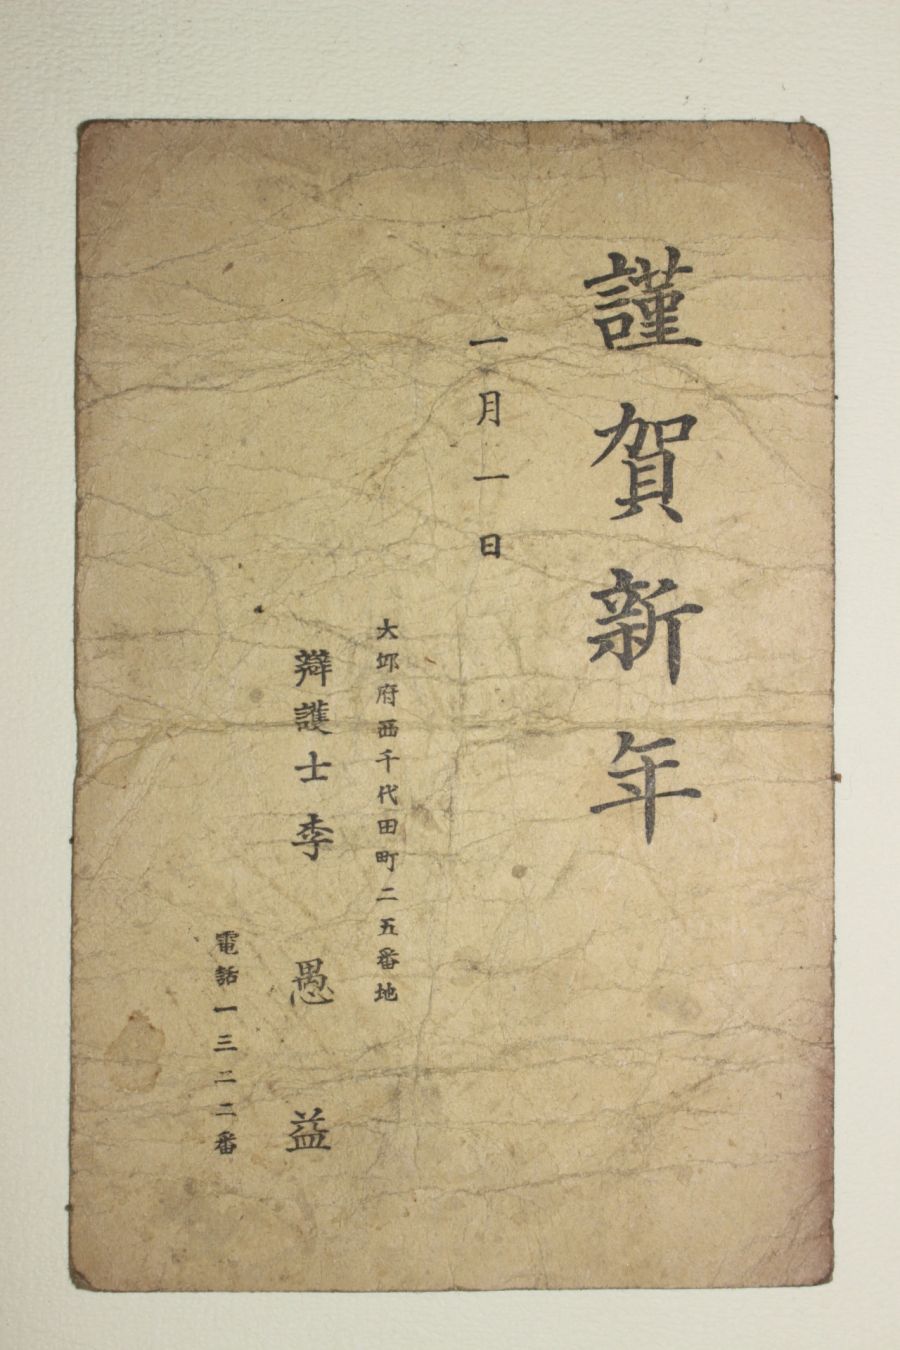 謹賀新年
一月一日
大邱府西千代田町二五番地
辯護士李愚益
電話一三二二番